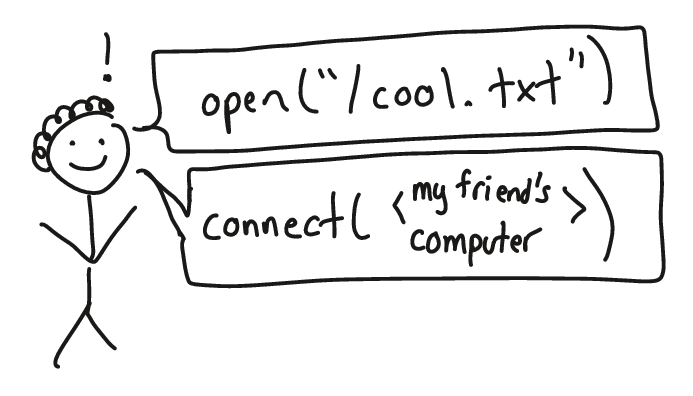 !
open("/cool.txt")
connect( <my friend's
computer> )